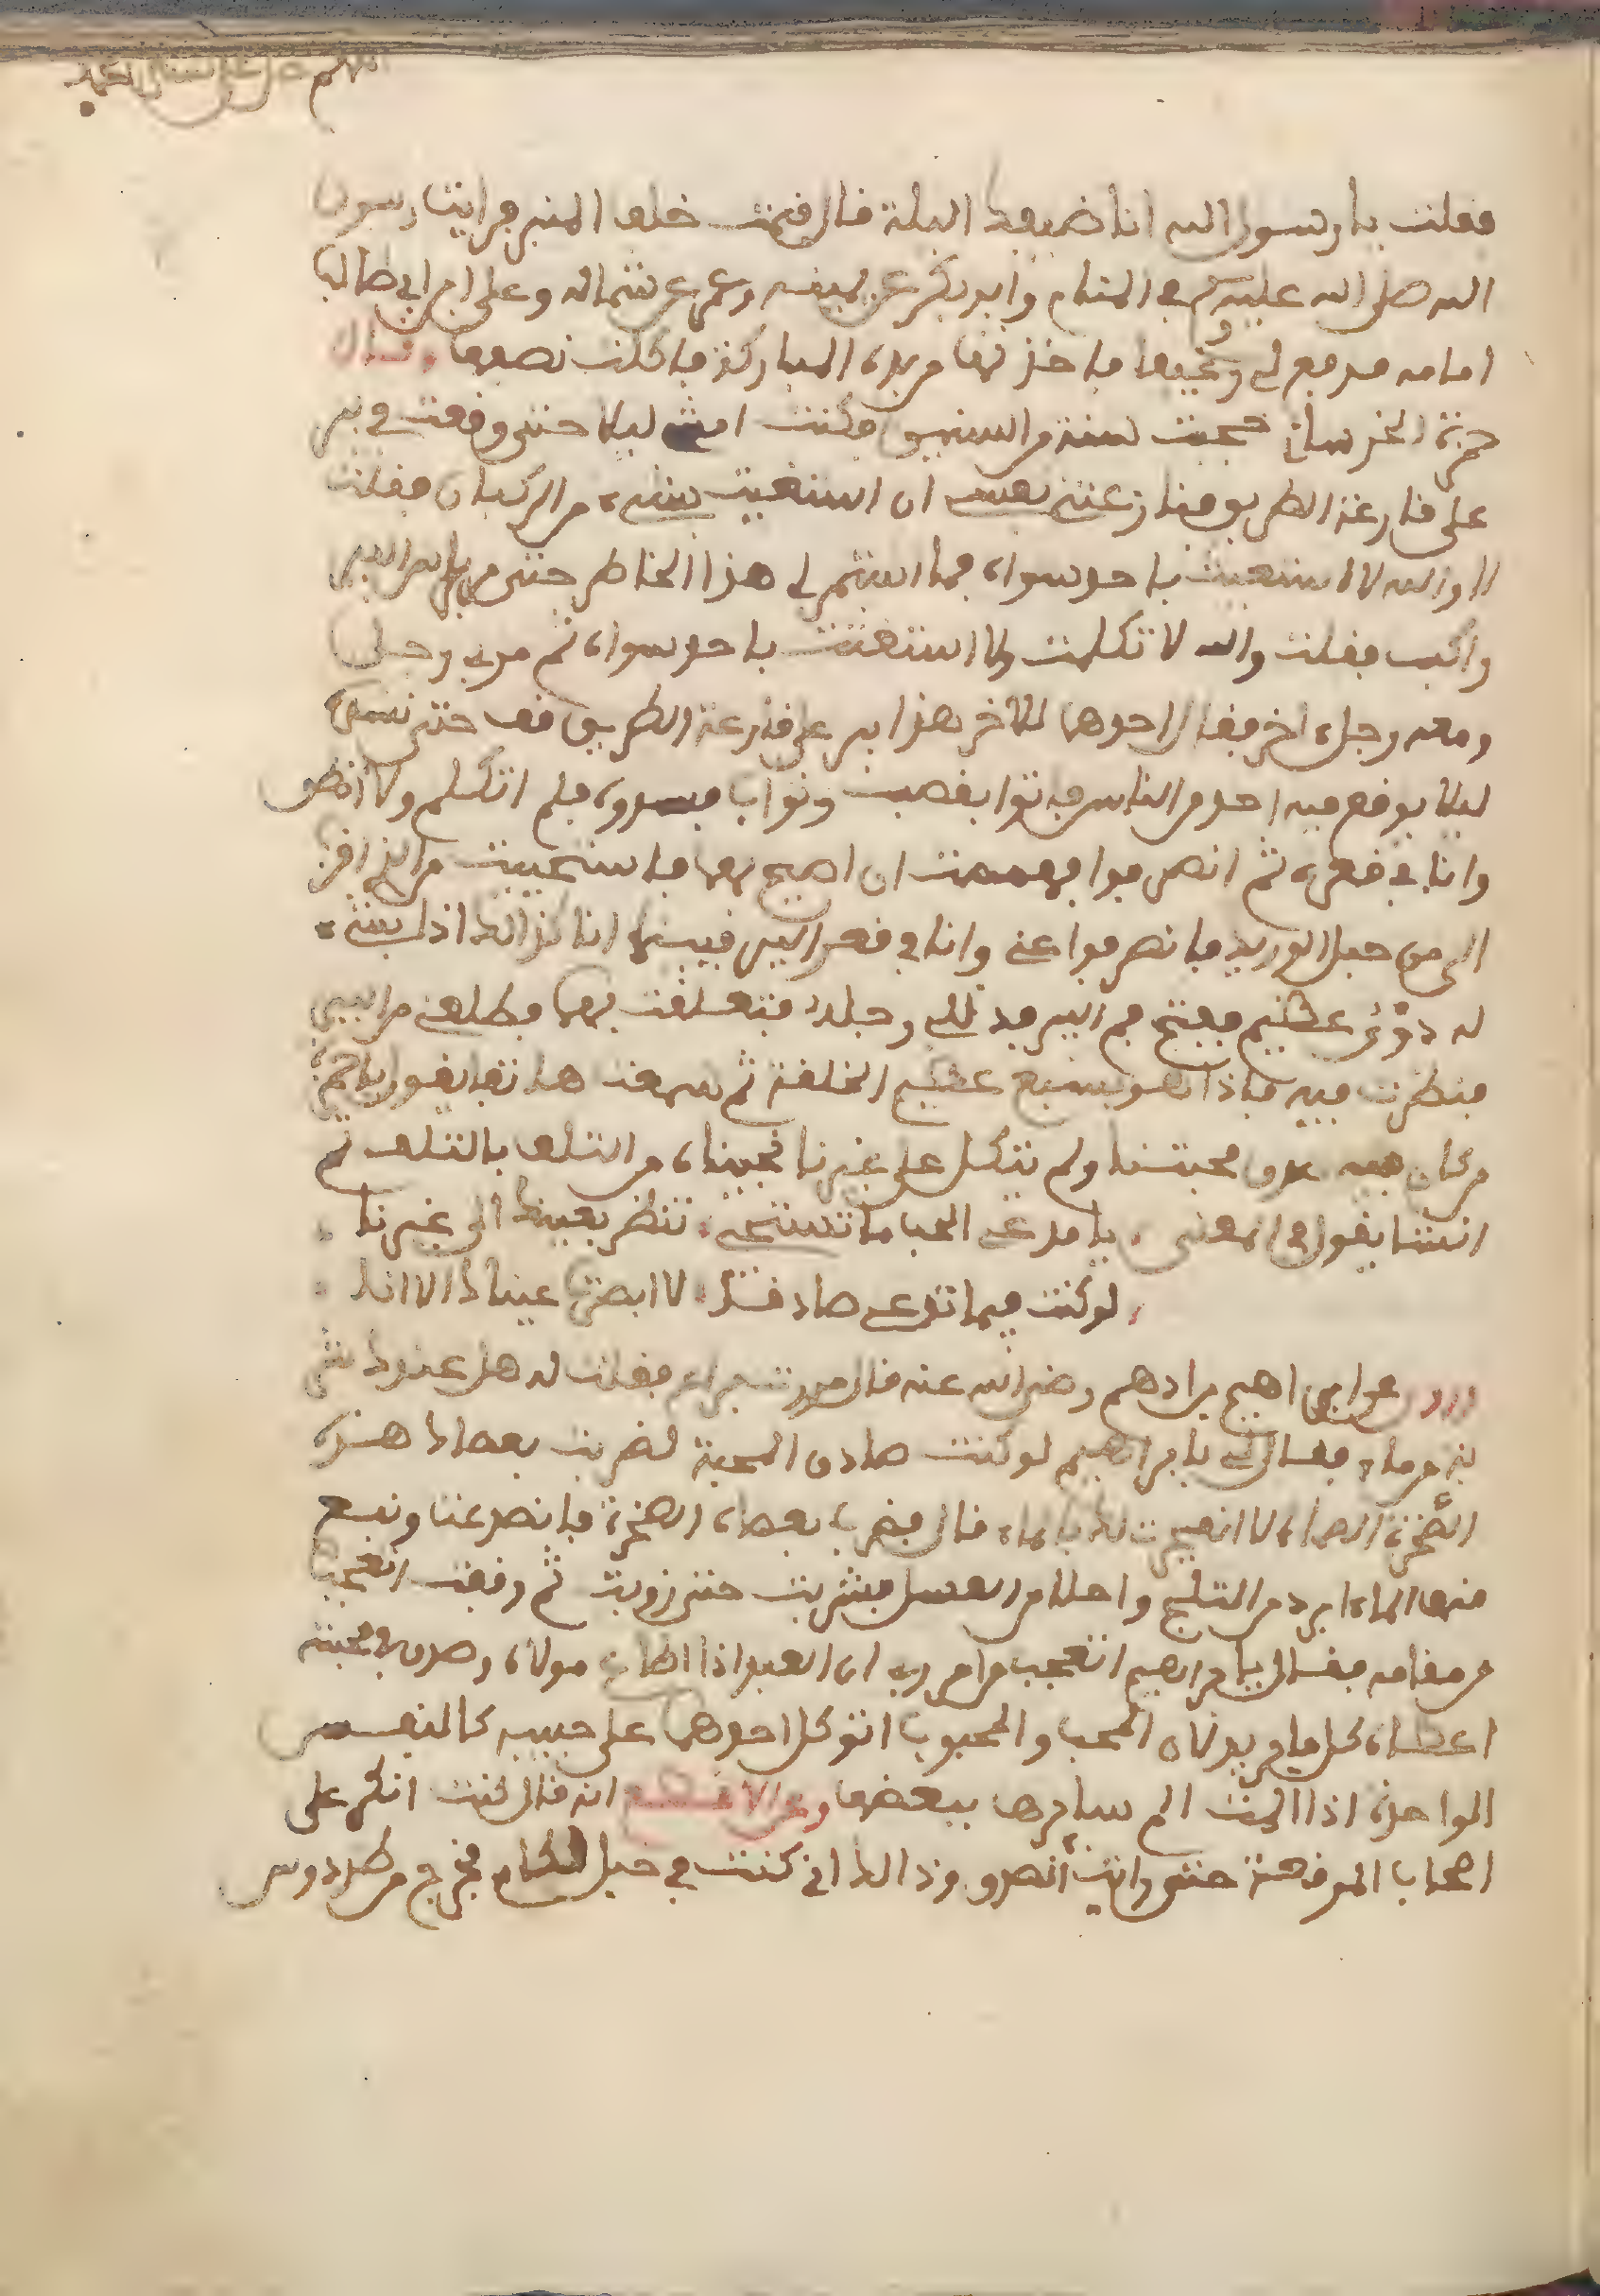 اللهم صل على سيدنا محمد
فقلت يا رسول الله انا ضيفك اليلة فال فنمت خلف المنبر فرايت رسول
الله صلى الله عليه وسلم في المنام وابو بكر عن يمينه وعمر عن شماله وعلى ابن ابي طالب
امامه فدفع لي رغيفا فاخذتها من يده المباركة فاكلت نصفها وفال
حمزة الخرساني حججت سنة من السنين فكنت امشي ليلا حتى وفعت في بير
على فارعة الطريق فنازعتني نفسي ان استغيث بشيء من الركبان فقلت
لا والله لا استغيث باحد سواه فما استتم لي هذا الخاطر حتى مر براس البير
راكب فقلت والله لا تكلمت ولا استغثت باحد سواه ثم مر بي رجل
ومعه رجل اخر فقال احدهما للاخر هذا بير على فارعة الطريق فف حتى نسد
ليلا يوفع فيه احد من الناس فاتوا بفصب وتراب فسدوه فلم اتكلم ولا انظر
وانا في فعره ثم انصرفوا فهممت ان اصيح بهما فاستحييت من الذي افرب
الي من حبل الوريد فانصرفوا عني وانا في فعر البير فبينما انا كذالك اذا بشيء
له دوي عظيم ففتح فم البير فدلى رجله فتعلفت بها فطلعني من البير
فنظرت فيه فاذا هو سبع عظيم الخلفة ثم سمعت هاتفا يفول يا حمزة
من كان فيه صدق محبتنا ولم يتكل على غيرنا نجيناه من التلف بالتلف ثم
انشا يفول في المعنى يا مدعي الحب ما تستحي تنظر بعينك الى غيرنا
لو كنت فيما تدعي صادفا لا ابصرت عيناك الا انا
وروي عن ابراهيم بن ادهم رضي الله عنه فال مررت براع فقلت له هل عندك شي
من ماء ففال لي يا ابراهيم لو كنت صادق المحبة لضربت بعصاك هذه
الصخرة الصماء لا انفجرت لك بالماء فال فضرب بعصاه الصخرة فانصدعت ونبع
منها الماء ابرد من الثلج واحلا من العسل فشربت حتى رويت ثم وفعت اتعجب
من مفامه ففال يا ابراهيم اتعجب من امر ربي ان العبد اذا اطاع مولاه وصدق في محبته
اعطاه كل ما يريد لان المحب والمحبوب اتوكل احدهما على حبيبه كالنفس
الواحدة اذا المت الم سايرها ببعضها وعن الاصمعي انه فال كنت انكر على
اصحاب المرفعة حتى رايت الصدق وذالك اني كنت في جبل لكام فخرج من كردوس